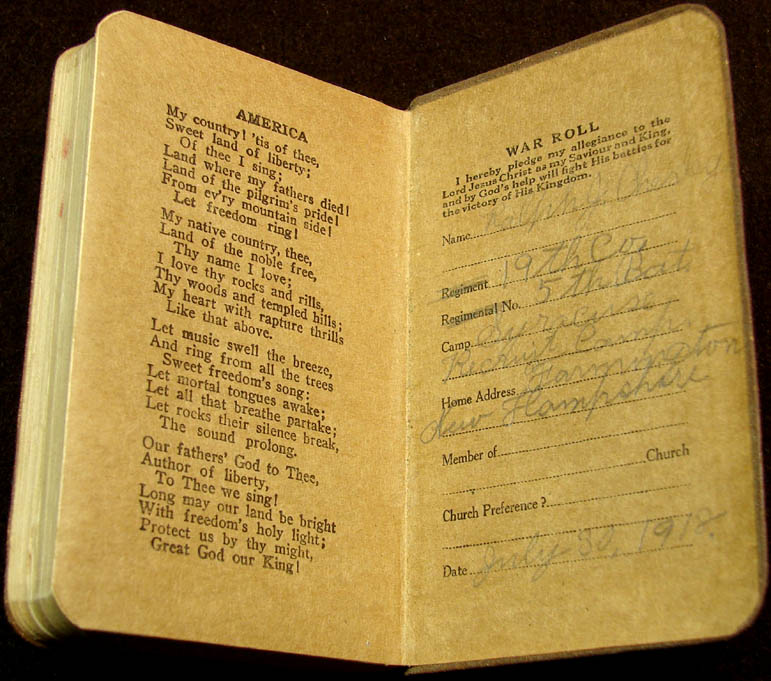 AMERICA
My country! 'tis of thee,
Sweet land of liberty;
Of thee I sing;
Land where my fathers died!
Land of the pilgrim's pride!
From ev'ry mountain side!
Let freedom ring!
My native country, thee,
Land of the noble free,
Thy name I love;
I love thy rocks and rills,
Thy woods and templed hills;
My heart with rapture thrills
Like that above.
Let music swell the breeze,
And ring from all the trees
Sweet freedom's song;
Let mortal tongues awake;
Let all that breathe partake;
Let rocks their silence break,
The sound prolong.
Our fathers' God to Thee,
Author of liberty,
To Thee we sing!
Long may our land be bright
With freedom's holy light;
Protect us by thy might,
Great God our King!
WAR ROLL
I hereby pledge my allegiance to the
Lord Jesus Christ as my Saviour and King,
and by God's help will fight His battles for
the victory of His Kingdom.
Name Ralph J.
Regiment 19th Co.
Regimental No. 5th Bat.
Camp Syracuse
Recruit Camp
Home Address Farmington
New Hampshire
Member of
Church
Church Preference?
Date July 30, 1918